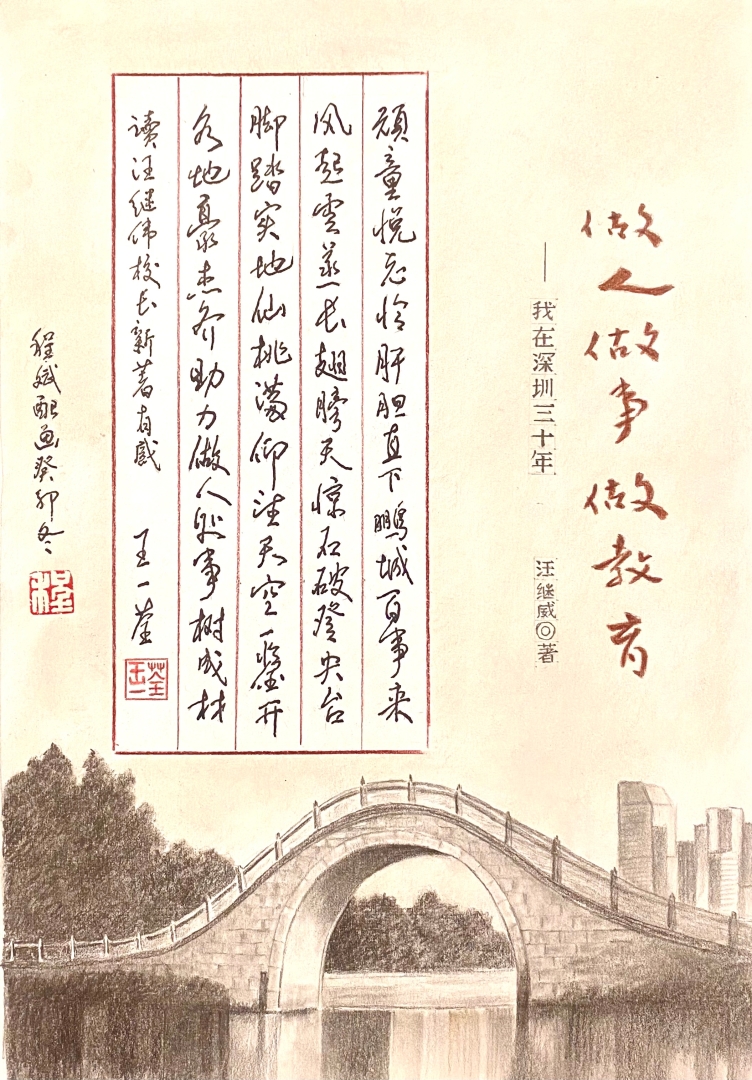 做人做事做教育
——我在深圳三十年
汪继威◎著
頑童悦忘怜肝胆直下鹏城百事来
风起雲蒸长翅膀天惊石破登央台
脚踏实地仙桃满仰望天空一鑒开
各地豪杰齐助力做人做事树成材
读汪继伟校长新著有感 王一荃
王一荃
程斌配画癸卯冬
程